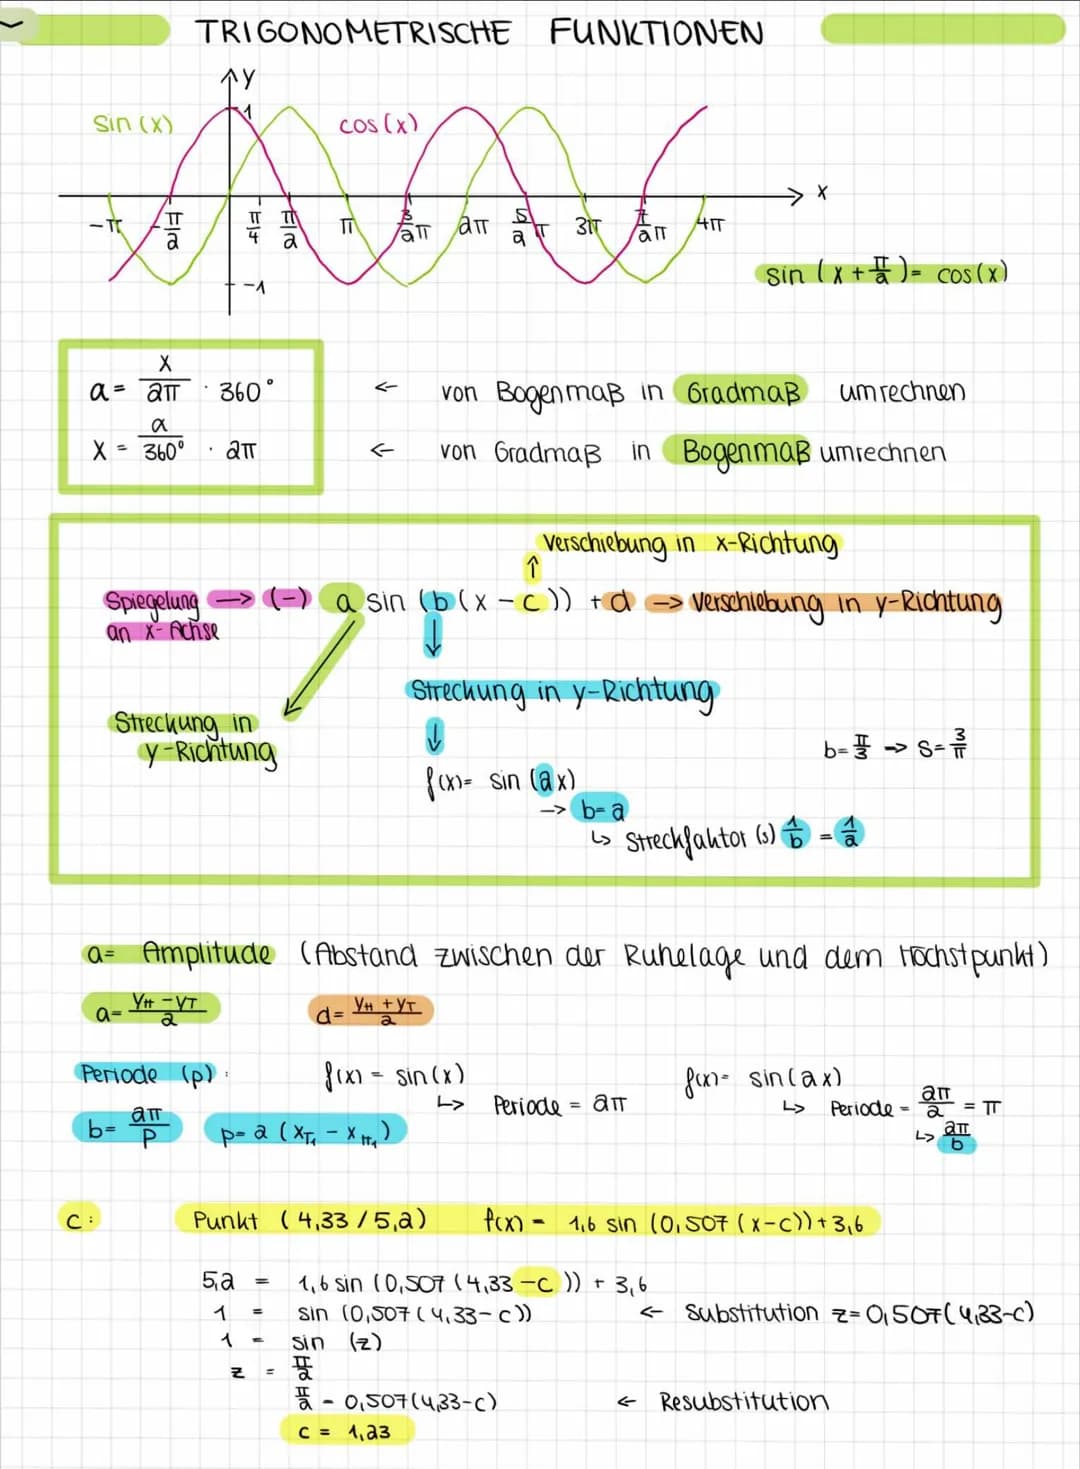 TRIGONOMETRISCHE FUNKTIONEN
y
sin (x)
1
cos(x)
x
-π
-π/2
π/4
π/2
π
3/2π
2π
5/2π
3π
7/2π
4π
-1
sin (x + π/2) = cos(x)
a = x/2π · 360° ← von Bogenmaß in Gradmaß umrechnen
x = a/360° · 2π ← von Gradmaß in Bogenmaß umrechnen
Verschiebung in x-Richtung
↑
Spiegelung → (-) a sin (b(x - c)) + d -> Verschiebung in y-Richtung
an x-Achse
↓
Streckung in y-Richtung
Streckung in
y-Richtung
↓
b = π/3 -> s = 3/π
f(x) = sin (2x)
-> b = 2
↳ Streckfaktor (s) 1/b = 1/2
a = Amplitude (Abstand zwischen der Ruhelage und dem Hochstpunkt)
a = yH - yT/2
d = yH + yT/2
Periode (p):
f(x) = sin(x)
f(x) = sin(2x)
↳ Periode = 2π
↳ Periode = 2π/2 = π
b = 2π/p
p = 2 (xT1 - xH1)
↳ 2π/b
c:
Punkt (4,33 / 5,2) f(x) = 1,6 sin (0,507 (x-c)) + 3,6
5,2 = 1,6 sin (0,507 (4,33 - c)) + 3,6
1 = sin (0,507 (4,33 - c)) ← Substitution z = 0,507(4,33-c)
1 = sin (z)
z = π/2
π/2 = 0,507(4,33-c) ← Resubstitution
c = 1,23